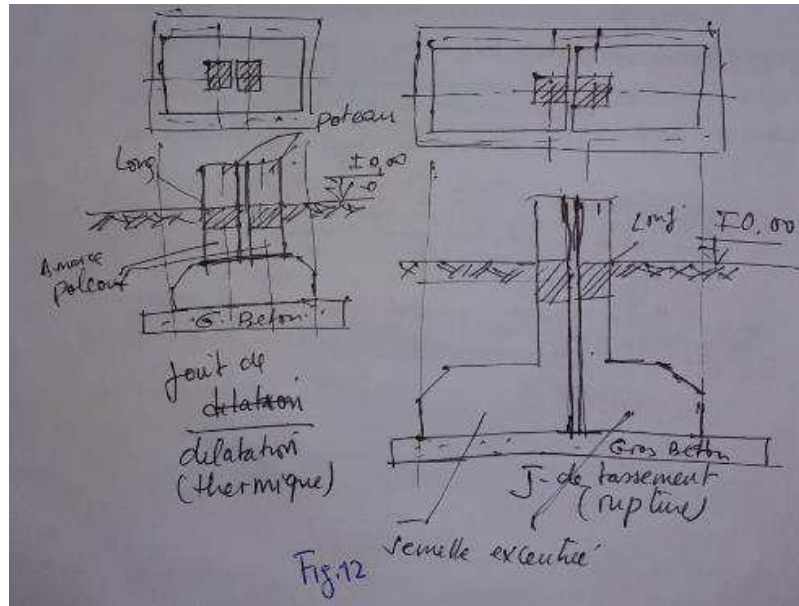 poteau
Long
±0,00
Amorce
poteau
G. Beton
Joint de
dilatation
delatation
(thermique)
Long.
∓0.00
Gros Béton
J. de tassement
(rupture)
semelle excentré
Fig.12